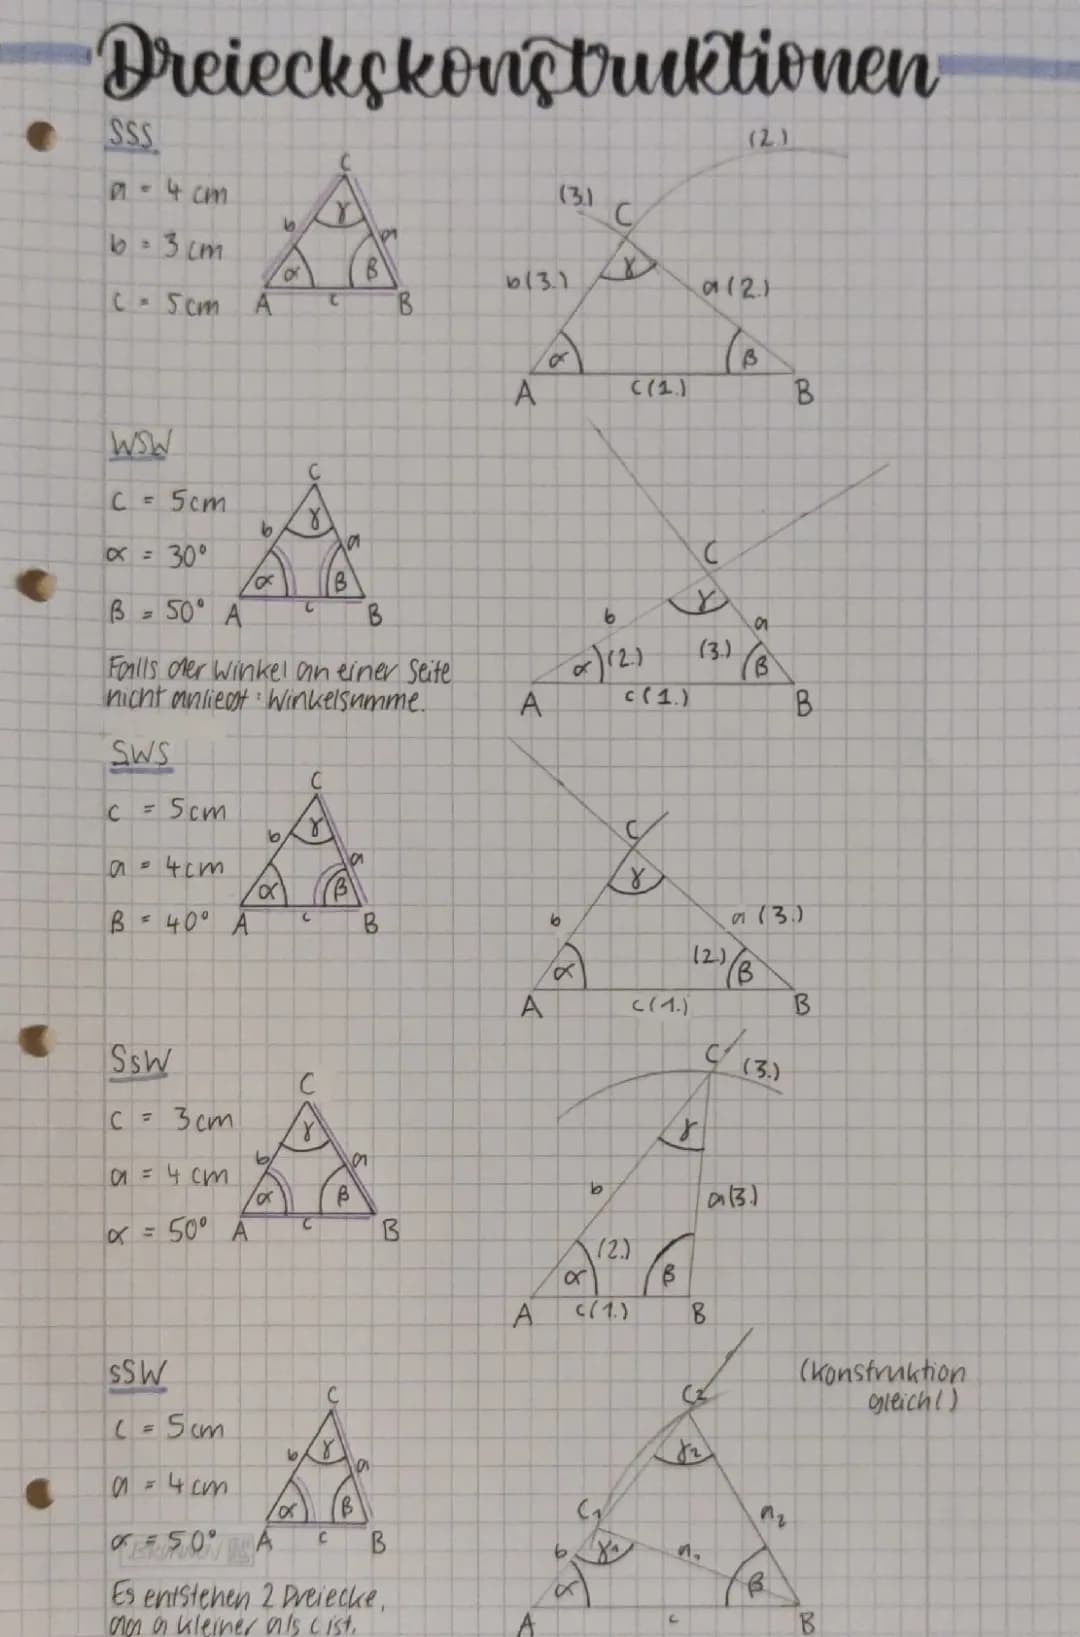 Dreieckskonstruktionen
SSS
a = 4 cm
b = 3 cm
c = 5 cm
C
γ
b
a
α
β
A
c
B
(2.)
(3.)
C
γ
b (3.)
a (2.)
α
β
A
c (1.)
B
WSW
c = 5 cm
α = 30°
β = 50°
C
γ
b
a
α
β
A
c
B
Falls der Winkel an einer Seite
nicht anliegt: Winkelsumme.
C
γ
b
a
α (2.)
(3.) β
A
c (1.)
B
SWS
c = 5 cm
a = 4 cm
β = 40°
C
γ
b
a
α
β
A
c
B
C
γ
b
a (3.)
α
(2.) β
A
c (1.)
B
SsW
c = 3 cm
a = 4 cm
α = 50°
C
γ
b
a
α
β
A
c
B
C
(3.)
γ
b
a (3.)
(2.)
α
β
A
c (1.)
B
sSW
c = 5 cm
a = 4 cm
α = 50°
C
γ
b
a
α
β
A
c
B
Es entstehen 2 Dreiecke,
da a kleiner als c ist.
(Konstruktion
gleich!)
C2
γ2
C1
a2
b
γ1
a1
α
β
A
c
B